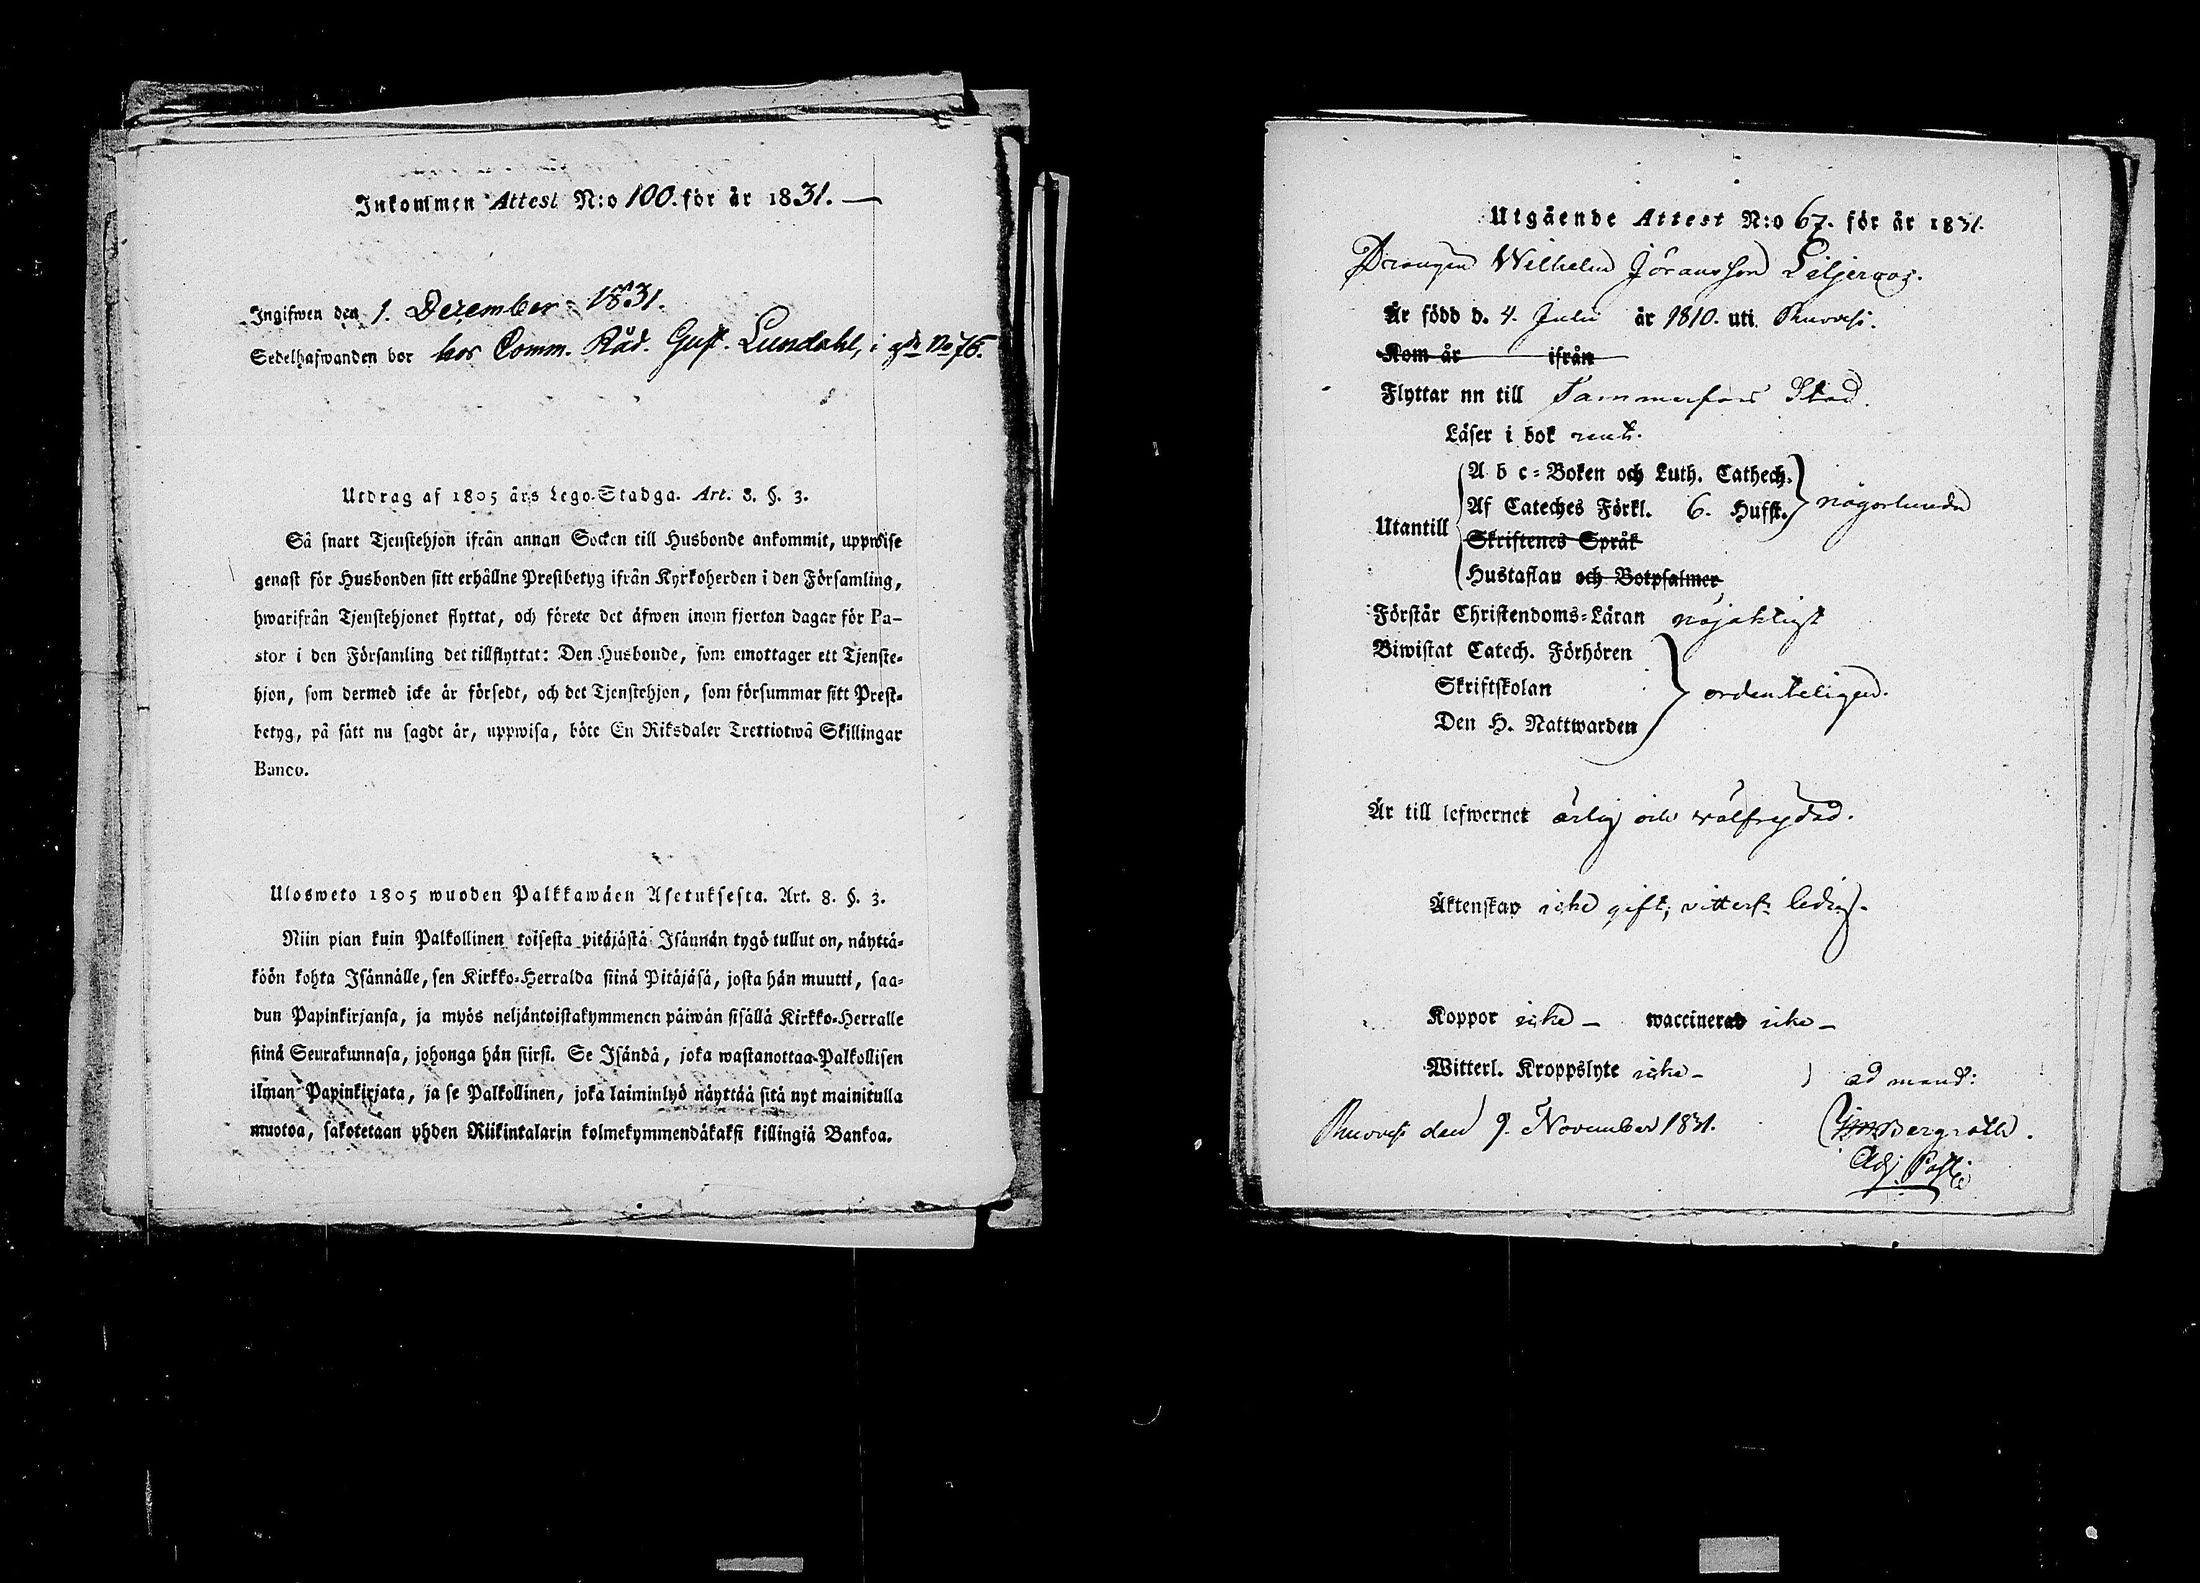 Inkommen Attest N:o 100. för år 1831. —
Ingifwen den 1. December 1831.
Sedelhafwanden bor hos Comm. Råd. Gust. Lundahl, i gdn No 76.
Utdrag af 1805 års Lego-Stadga. Art. 8. §. 3.
Så snart Tjenstehjon ifrån annan Socken till Husbonde ankommit, uppwise
genast för Husbonden sitt erhållne Prestbetyg ifrån Kyrkoherden i den Församling,
hwarifrån Tjenstehjonet flyttat, och förete det äfwen inom fjorton dagar för Pa-
stor i den Församling det tillflyttat: Den Husbonde, som emottager ett Tjenste-
hjon, som dermed icke är försedt, och det Tjenstehjon, som försummar sitt Prest-
betyg, på sätt nu sagdt är, uppwisa, böte En Riksdaler Trettiotwå Skillingar
Banco.
Ulosweto 1805 wuoden Palkkawäen Asetuksesta. Art. 8. §. 3.
Niin pian kuin Palkollinen toisesta pitäjästä Isännän tygö tullut on, näyttä-
köön kohta Isännälle, sen Kirkko-Herralda siinä Pitäjäsä, josta hän muutti, saa-
dun Papinkirjansa, ja myös neljäntoistakymmenen päiwän sisällä Kirkko-Herralle
siinä Seurakunnasa, johonga hän siirsi. Se Isändä, joka wastanottaa Palkollisen
ilman Papinkirjata, ja se Palkollinen, joka laiminlyö näyttää sitä nyt mainitulla
muotoa, sakotetaan yhden Riikintalarin kolmekymmendäkaksi killingiä Bankoa.
Utgående Attest N:o 67. för år 1831.
Drängen Wilhelm Jöransson Liljeroos.
Är född d. 4. Julii år 1810. uti Ruovesi.
Kom år ifrån
Flyttar nn till Tammerfors Stad.
Läser i bok rent.
Utantill
A b c-Boken och Luth. Cathech.
Af Cateches Förkl. 6. Hufst. någorlunda
Skriftenes Språk
Hustaflan och Botpsalmer
Förstår Christendoms-Läran nöjaktigt
Biwistat Catech. Förhören
Skriftskolan ordenteligen.
Den H. Nattwarden
Är till lefwernet ärlig och wälfrejdad.
Äktenskap icke gift, vitterl: ledig.
Koppor icke — waccinerad icke —
Witterl. Kroppslyte icke —
ad mand:
Ruovesi den 9. November 1831. Bergroth.
Adj. Past: